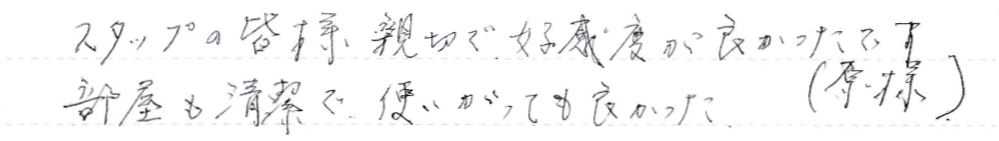 スタップの皆様、親切で、好感度が良かったです
部屋も清潔で、使いがっても良かった。(原様)